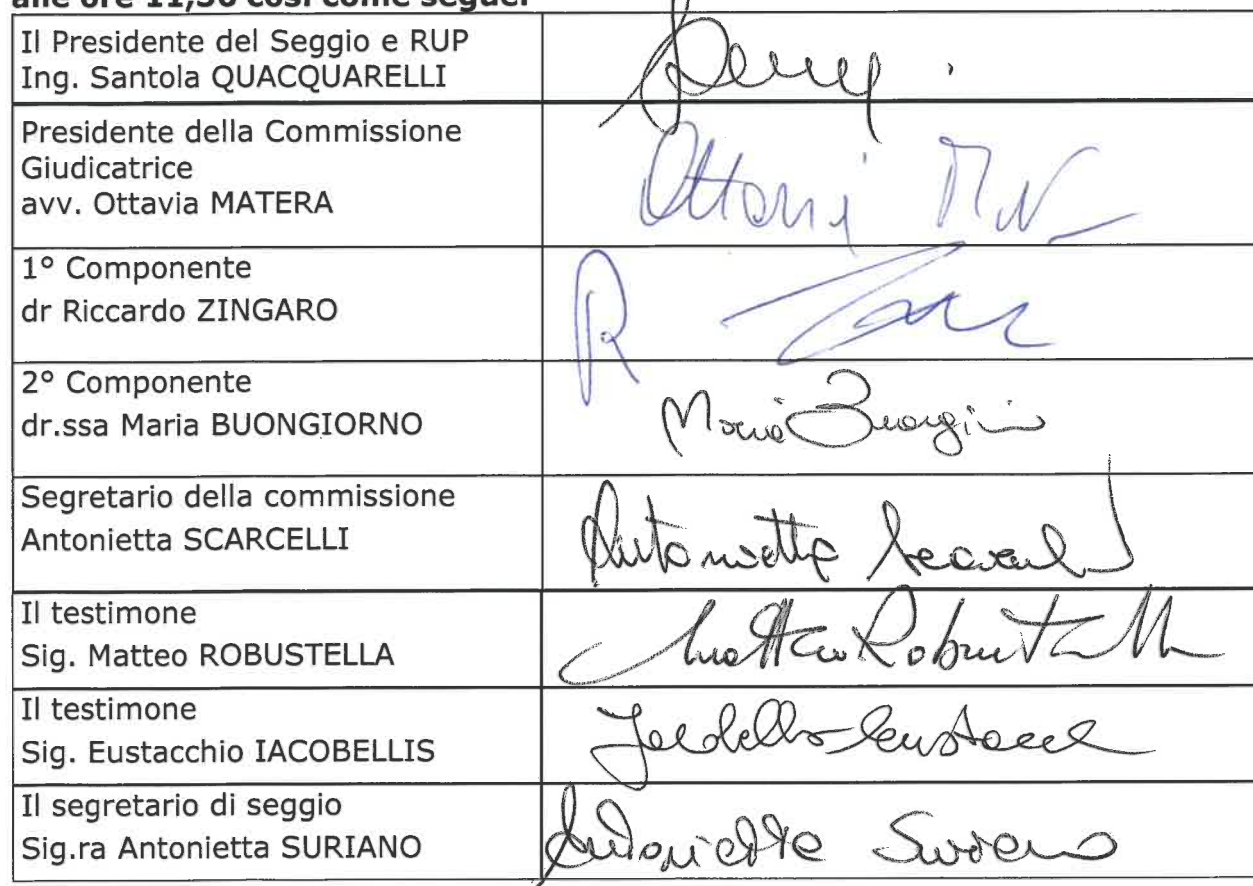 alle ore 11,30 così come segue:
Il Presidente del Seggio e RUP
Ing. Santola QUACQUARELLI
Presidente della Commissione
Giudicatrice
avv. Ottavia MATERA
1° Componente
dr Riccardo ZINGARO
R
2° Componente
dr.ssa Maria BUONGIORNO
Maria Buongiorno
Segretario della commissione
Antonietta SCARCELLI
Antonietta Scarcelli
Il testimone
Sig. Matteo ROBUSTELLA
Matteo Robustella
Il testimone
Sig. Eustacchio IACOBELLIS
Il segretario di seggio
Sig.ra Antonietta SURIANO
Antonietta Suriano